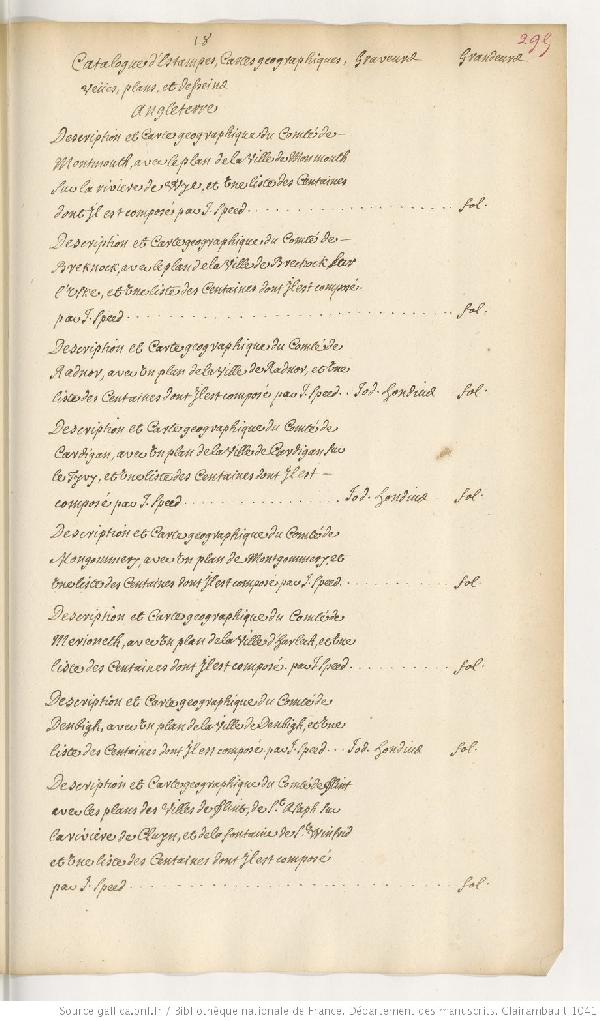 18
295
Catalogue d'Estampes, Cartes geographiques, Graveurs Grandeurs
veües, plans, et desseins
Angleterre
Description et Carte geographique du Comté de
Montmouth, avec le plan de la Ville de Monmouth
sur la riviere de Wye, et une liste des Centaines
dont Il est composé par J. Speed. fol.
Description et Carte geographique du Comté de
Breknock, avec le plan de la Ville de Brecnock sur
l'Uske, et une liste des Centaines dont Il est composé
par J. Speed fol.
Description et Carte geographique du Comté de
Radnor, avec un plan de la Ville de Radnor, et une
liste des Centaines dont Il est composé par J. Speed.. Jod. Hondius fol.
Description et Carte geographique du Comté de
Cardigan, avec un plan de la Ville de Cardigan sur
le Tyvy, et une liste des Centaines dont Il est
composé par J. Speed Jod. Hondius fol.
Description et Carte geographique du Comté de
Mongommery, avec un plan de Montgommery, et
une liste des Centaines dont Il est composé par J. Speed. fol.
Description et Carte geographique du Comté de
Merioneth, avec un plan de la Ville d'Harlech, et une
liste des Centaines dont Il est composé par J. Speed. fol.
Description et Carte geographique du Comté de
Denbigh, avec un plan de la Ville de Denbigh, et une
liste des Centaines dont Il est composé par J. Speed... Jod. Hondius fol.
Description et Carte geographique du Comté de flint
avec les plans des Villes de flint, de St. Asaph sur
la riviere de Cluyn, et de la fontaine de Ste. Winfred
et une liste des Centaines dont Il est composé
par J. Speed fol.
Source gallica.bnf.fr / Bibliothèque nationale de France. Département des manuscrits. Clairambault 1041